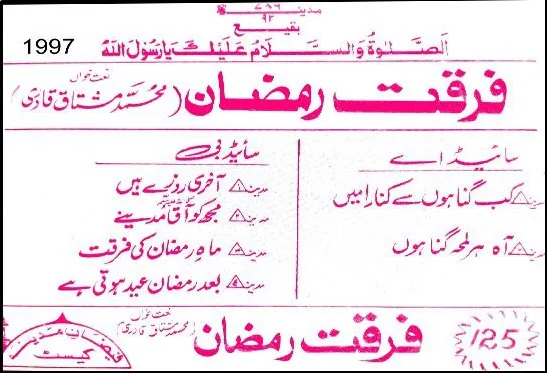 مدینہ ۷۸۶
۹۲
بقیع
1997
الصَّلٰوۃُ وَالسَّلَامُ عَلَیْكَ یَارَسُوْلَ اللّٰہ
فرقت رمضان (نعت خواں محمد مشتاق قادری)
سائیڈ اے
مدینہ ۱ کب گناہوں سے کنارا میں
مدینہ ۲ آہ ہر لمحہ گناہوں
سائیڈ بی
مدینہ ۱ آخری روزے ہیں
مدینہ ۲ مجھ کو آقا مدینے
مدینہ ۳ ماہِ رمضان کی فرقت
مدینہ ۴ بعد رمضان عید ہوتی ہے
125
فرقت رمضان (نعت خواں محمد مشتاق قادری)
فیضانِ مدینہ
کیسٹ